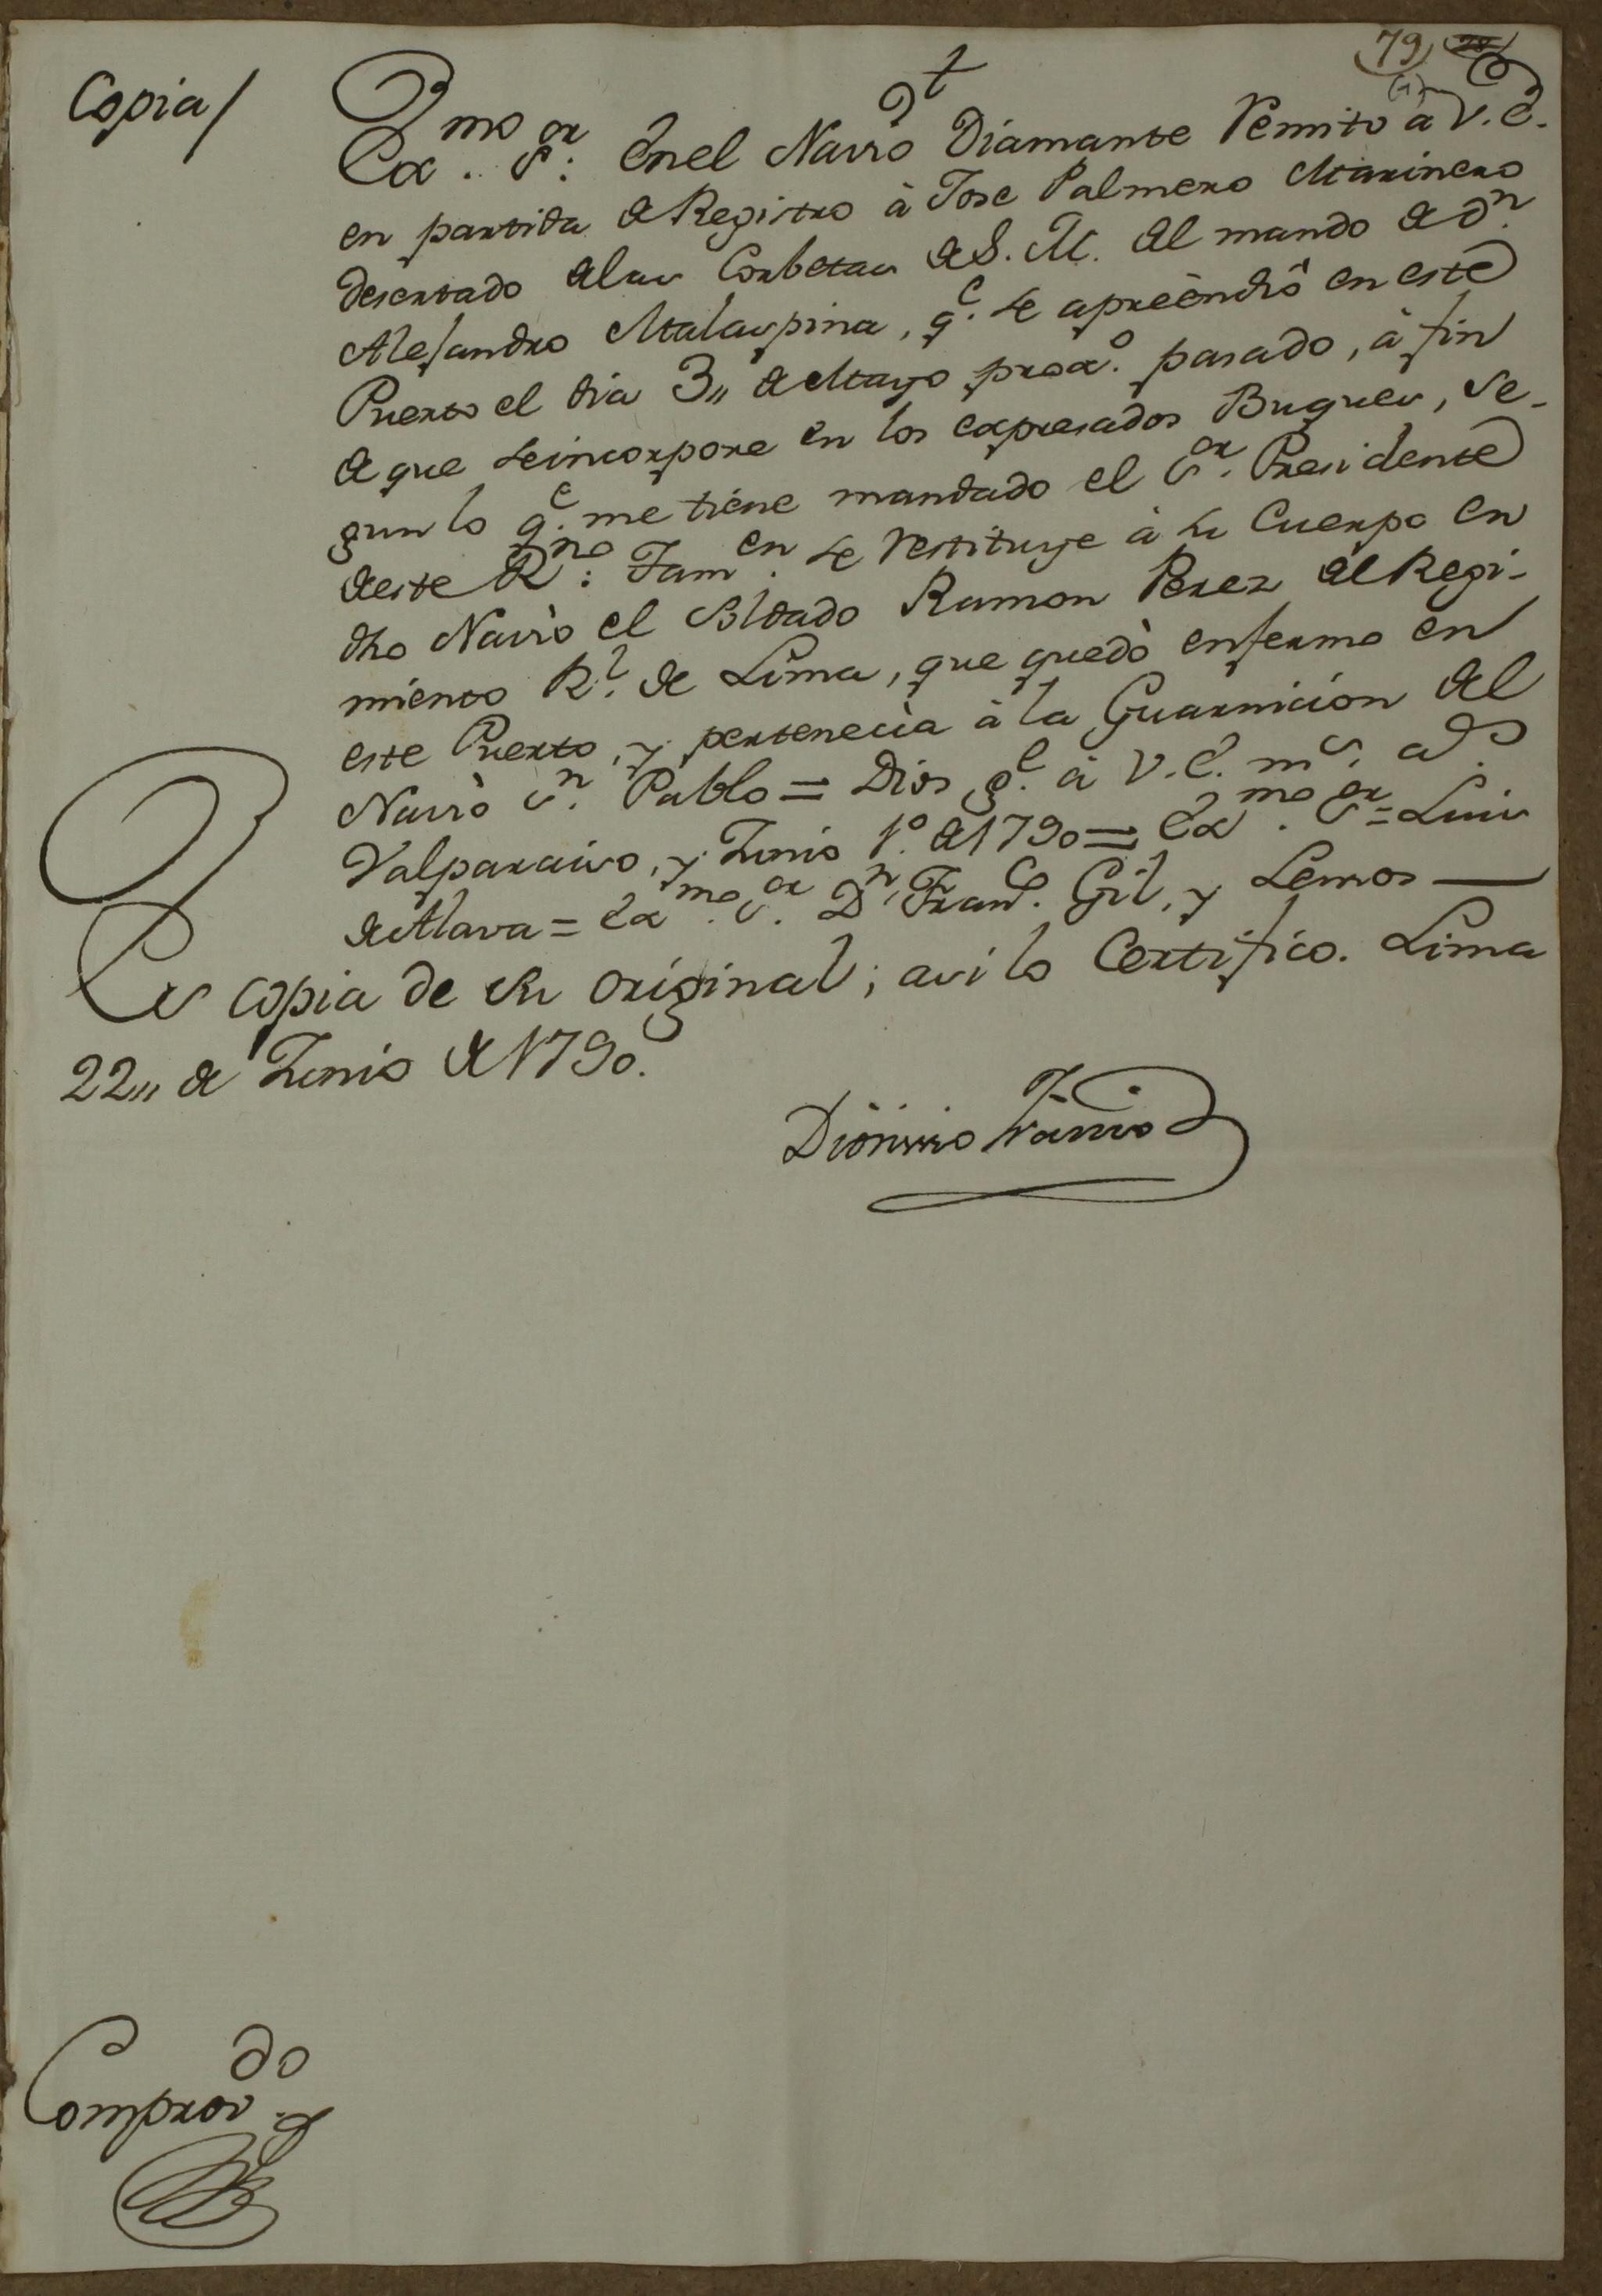 79
(1)
Copia/
Exmo. Sor: En el Navio Diamante Remito à V.E.
en partida de Registro à Jose Palmero Marinero
desertado de las Corbetas de S. M. del mando de Dn.
Alejandro Malaspina, qe. se apreèndiò en este
Puerto el dia 3,, de Mayo proxo. pasado, à fin
de que se incorpore en los expresados Buques, se-
gun lo qe. me tiene mandado el Sor. Presidente
de este Rno: Tamen. se restituye à su Cuerpo en
dho Navio el Soldado Ramon Perez del Regi-
miento Rl. de Lima, que quedò enfermo en
este Puerto, y pertenecia à la Guarnicion del
Navio Sn. Pablo = Dios ge. à V.E. ms. as.
Valparaiso, y Junio 1º. de 1790 = Exmo. Sor = Luis
de Alava = Exmo. Sor. Dn. Franco. Gil, y Lemos —
Es copia de su original; asi lo Certifico. Lima
22,, de Junio de 1790.
Dionisio Franco
Comprovdo.